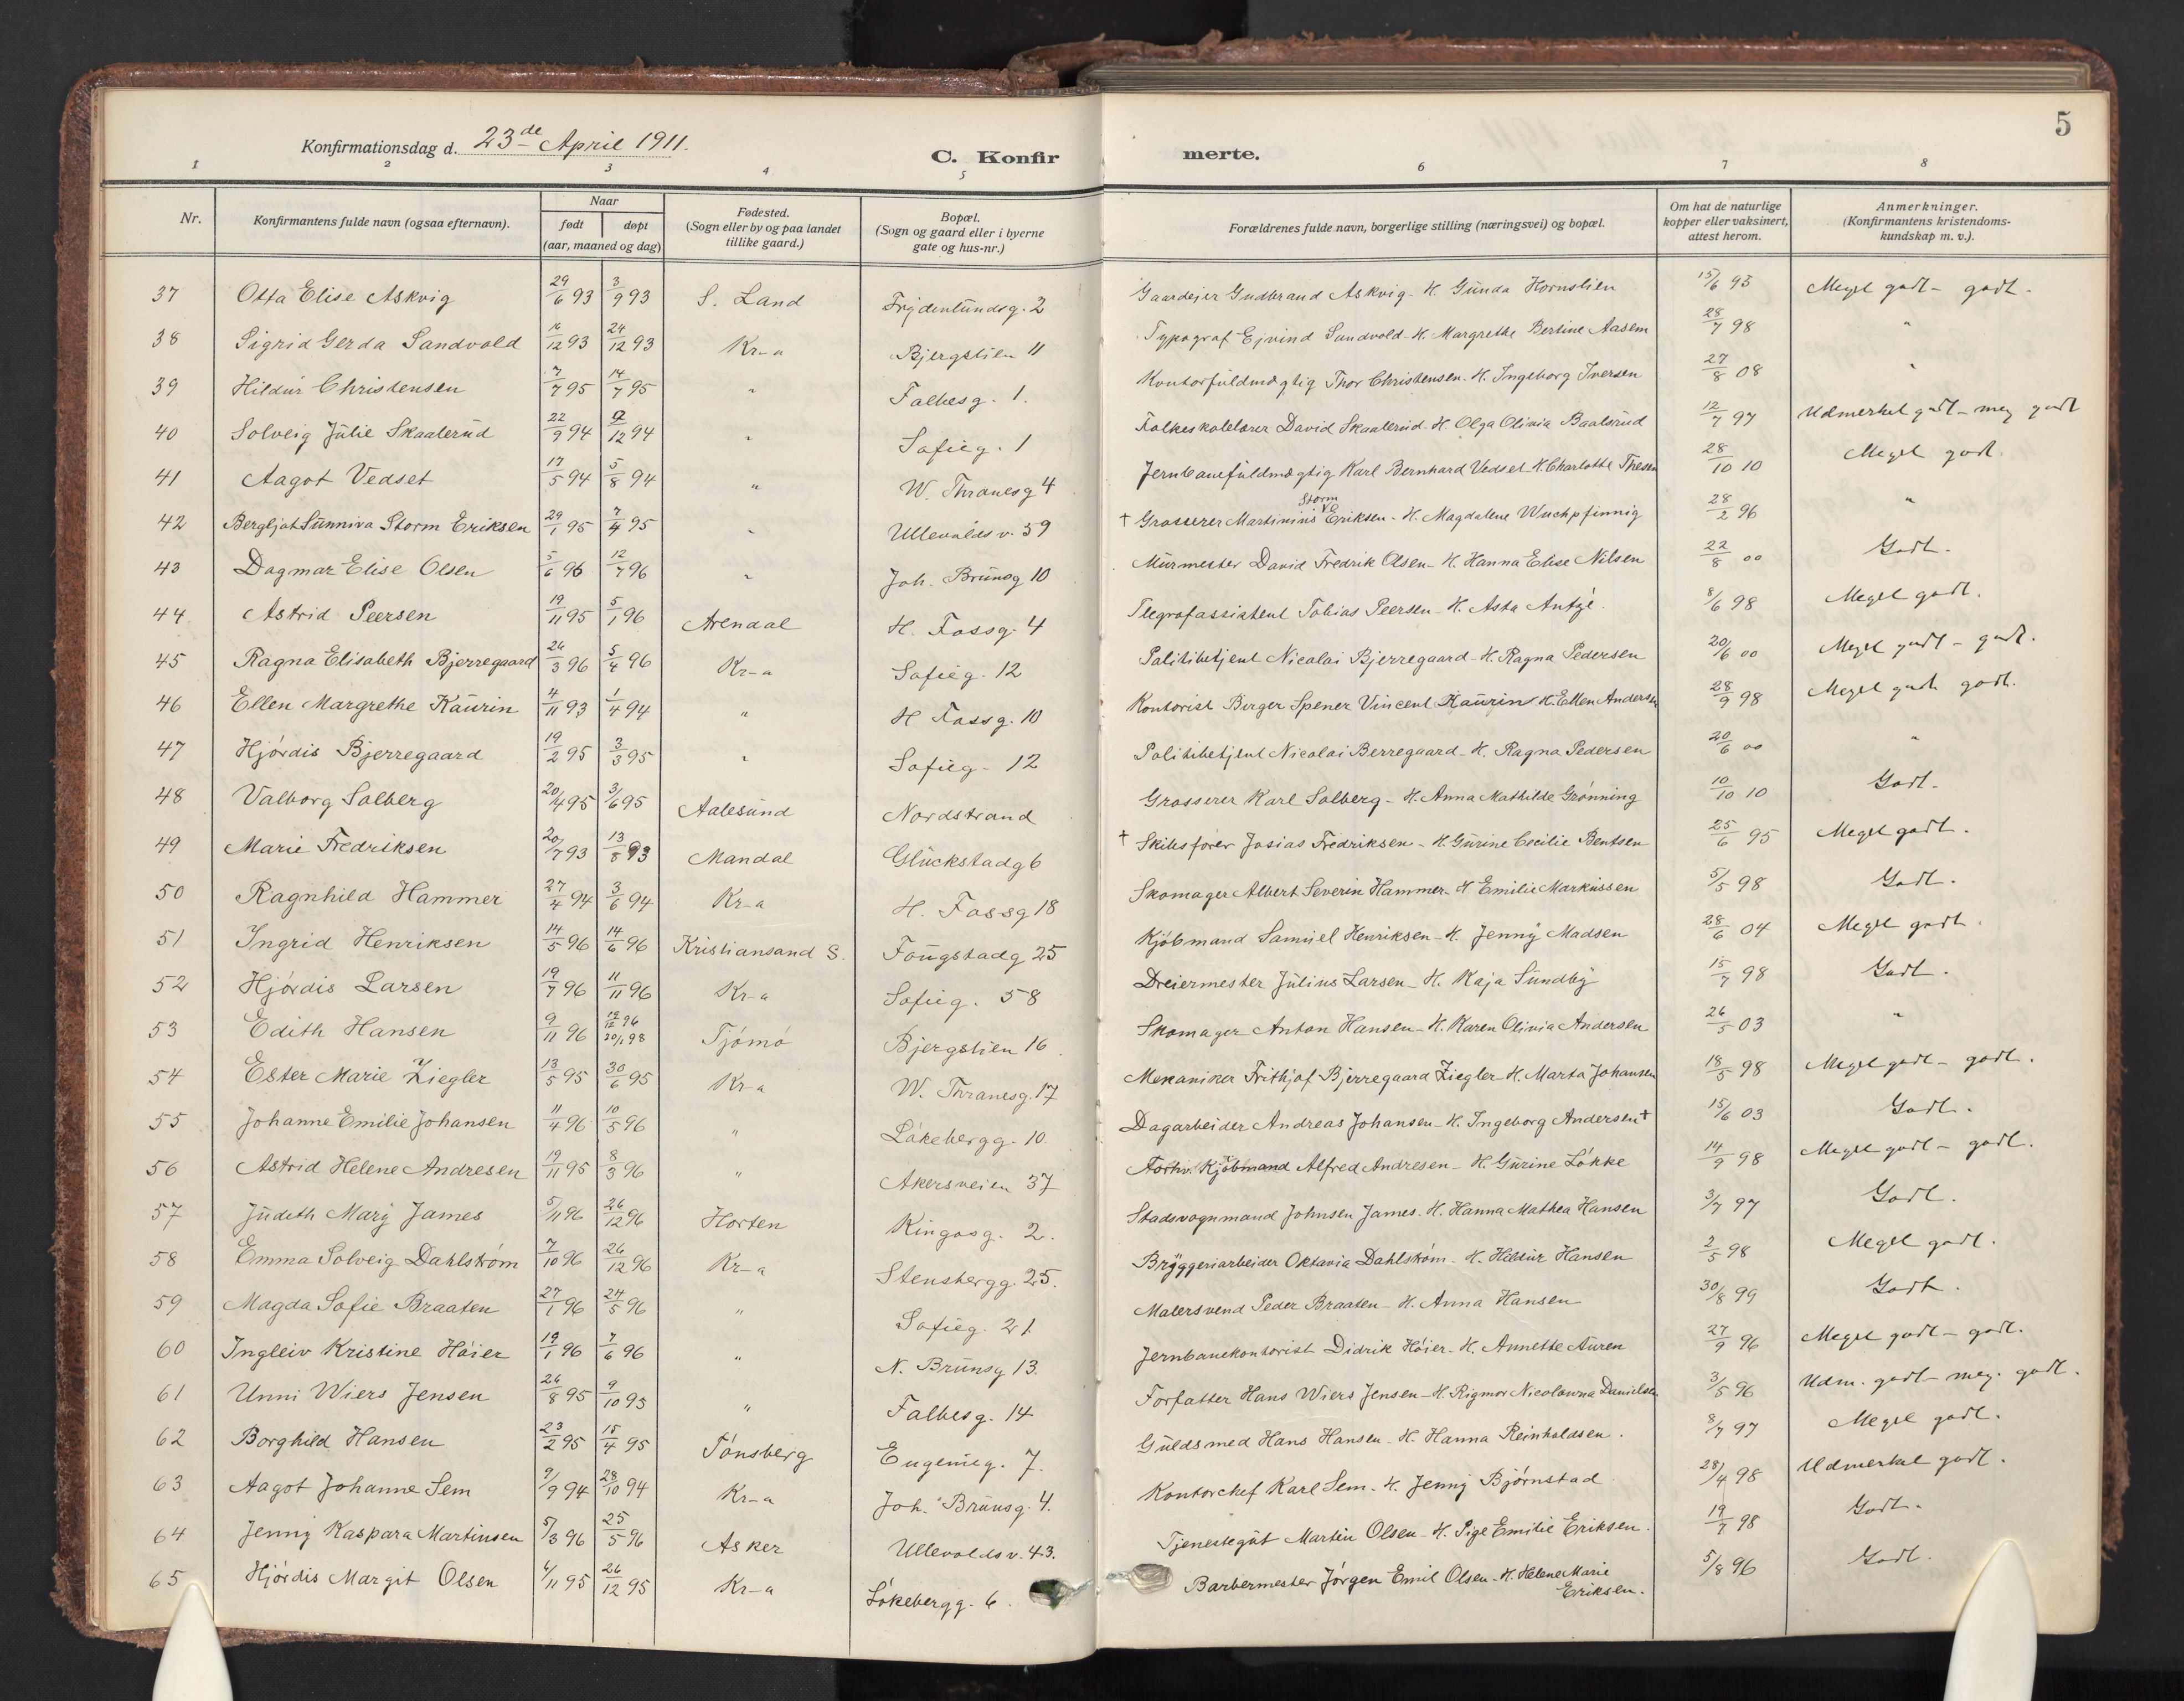 5
Konfirmationsdag d. 23de April 1911.
C. Konfirmerte.
1 2 3 4 5 6 7 8
Nr. | Konfirmantens fulde navn (ogsaa efternavn). | Naar født døpt (aar, maaned og dag) | Fødested. (Sogn eller by og paa landet tillike gaard.) | Bopæl. (Sogn og gaard eller i byerne gate og hus-nr.) | Forældrenes fulde navn, borgerlige stilling (næringsvei) og bopæl. | Om hat de naturlige kopper eller vaksinert, attest herom. | Anmerkninger. (Konfirmantens kristendoms-kundskap m. v.).
37 Otta Elise Askvig 29/6 93 3/9 93 S. Land Frydenlundsg. 2 Gaardejer Gudbrand Askvig - H. Gunda Hornslien 15/6 93 Meget godt - godt.
38 Sigrid Gerda Sandvold 16/12 93 24/12 93 Kr-a Bjergstien 11 Typograf Ejvind Sandvold - H. Margrethe Bertine Aasem 28/7 98 "
39 Hildur Christensen 7/7 95 14/7 95 " Falbesg. 1. Kontorfuldmægtig Thor Christensen. H. Ingeborg Iversen 27/8 08 "
40 Solveig Julie Skaalerud 22/9 94 9/12 94 " Sofieg. 1 Folkeskolelærer David Skaalerud - H. Olga Olivia Baalsrud 12/7 97 Udmerket godt - meg godt
41 Aagot Vedset 17/5 94 5/8 94 " W. Thranesg 4 Jernbanefuldmægtig Karl Bernhard Vedset - H. Charlotte Thesen 28/10 10 Meget godt.
42 Bergljot Sunniva Storm Eriksen 29/1 95 7/4 95 " Ullevoldsv. 59 † Grosserer Martinius Storm Eriksen - H. Magdalene Wuchpfinnig 28/2 96 "
43 Dagmar Elise Olsen 5/6 96 12/7 96 " Joh. Brunsg 10 Murmester David Fredrik Olsen - H. Hanna Elise Nilsen 22/8 00 Godt.
44 Astrid Peersen 19/11 95 5/1 96 Arendal H. Fossg. 4 Tlegrafassistent Tobias Peersen - H. Asta Antzé. 8/6 98 Meget godt.
45 Ragna Elisabeth Bjerregaard 26/3 96 5/4 96 Kr-a Sofieg. 12 Politibetjent Nicolai Bjerregaard - H. Ragna Pedersen 20/6 00 Meget godt - godt.
46 Ellen Margrethe Kaurin 4/11 93 1/4 94 " H Fossg. 10 Kontorist Birger Spener Vincent Kaurin H. Ellen Andersen 28/9 98 Meget godt godt.
47 Hjørdis Bjerregaard 19/2 95 3/3 95 " Sofieg - 12 Politibetjent Nicolai Berregaard - H. Ragna Pedersen 20/6 00 "
48 Valborg Solberg 20/4 95 3/6 95 Aalesund Nordstrand Grosserer Karl Solberg - H. Anna Mathilde Grønning 10/10 10 Godt.
49 Marie Fredriksen 20/7 93 13/8 93 Mandal Glückstadg 6 † Skibsfører Josias Fredriksen - H. Gurine Cecilie Bentsen 25/6 95 Meget godt.
50 Ragnhild Hammer 27/4 94 3/6 94 Kr-a H. Fossg 18 Skomager Albert Severin Hammer - H Emilie Markussen 5/5 98 Godt.
51 Ingrid Henriksen 14/5 96 14/6 96 Kristiansand S. Fougstadg 25 Kjøbmand Samuel Henriksen - H. Jenny Madsen 28/6 04 Meget godt.
52 Hjørdis Larsen 19/7 96 11/11 96 Kr-a Sofieg. 58 Dreiermester Julius Larsen - H. Kaja Sundby 15/7 98 Godt.
53 Edith Hansen 9/11 96 13/12 96 20/1 98 Tjømø Bjergstien 16 Skomager Anton Hansen - H. Karen Olivia Andersen 26/5 03 "
54 Ester Marie Ziegler 13/5 95 30/6 95 Kr-a W. Thranesg. 17 Mekaniker Frithjof Bjerregaard Ziegler - H. Marta Johansen 18/5 98 Meget godt - godt.
55 Johanne Emilie Johansen 11/4 96 10/5 96 " Løkebergg. 10 Dagarbeider Andreas Johansen - H. Ingeborg Andersen † 15/6 03 Godt.
56 Astrid Helene Andresen 19/11 95 8/3 96 " Akersveien 37 Forhv. Kjøbmand Alfred Andresen - H. Gurine Løkke 14/9 98 Meget godt - godt.
57 Judith Mary James 5/11 96 26/12 96 Horten Kingosg. 2. Stadsvognmand Johnsen James. H. Hanna Mathea Hansen 3/7 97 Godt.
58 Emma Solveig Dahlstrøm 7/10 96 26/12 96 Kr-a Stensbergg. 25. Bryggeriarbeider Oktavia Dahlstrøm - H. Hildur Hansen 2/5 98 Meget godt.
59 Magda Sofie Braaten 27/1 96 24/5 96 " Sofieg. 21 Malersvend Peder Braaten - H. Anna Hansen 30/8 99 Godt.
60 Ingleiv Kristine Høier 19/1 96 7/6 96 " N. Brunsg 13. Jernbanekontorist Didrik Høier - H. Annette Auren 27/9 96 Meget godt - godt.
61 Unni Wiers Jensen 26/8 95 9/10 95 " Falbesg. 14 Forfatter Hans Wiers Jensen - H. Rigmor Nicolowna Danielsen 3/5 96 Udm. godt - meg. godt.
62 Borghild Hansen 23/2 95 15/4 95 Tønsberg Eugenieg. 7. Guldsmed Hans Hansen - H. Hanna Reinholdsen. 8/7 97 Meget godt.
63 Aagot Johanne Sem 9/9 94 28/10 94 Kr-a Joh. Brunsg. 4. Kontorchef Karl Sem - H. Jenny Bjørnstad 28/4 98 Udmerket godt.
64 Jenny Kaspara Martinsen 5/3 96 25/5 96 Asker Ullevoldsv. 43. Tjenestegut Martin Olsen - H. Pige Emilie Eriksen. 19/7 98 Godt.
65 Hjørdis Margit Olsen 4/11 95 26/12 95 Kr-a Løkebergg. 6. Barbermester Jørgen Emil Olsen - H. Helene Marie Eriksen. 5/8 96 Godt.